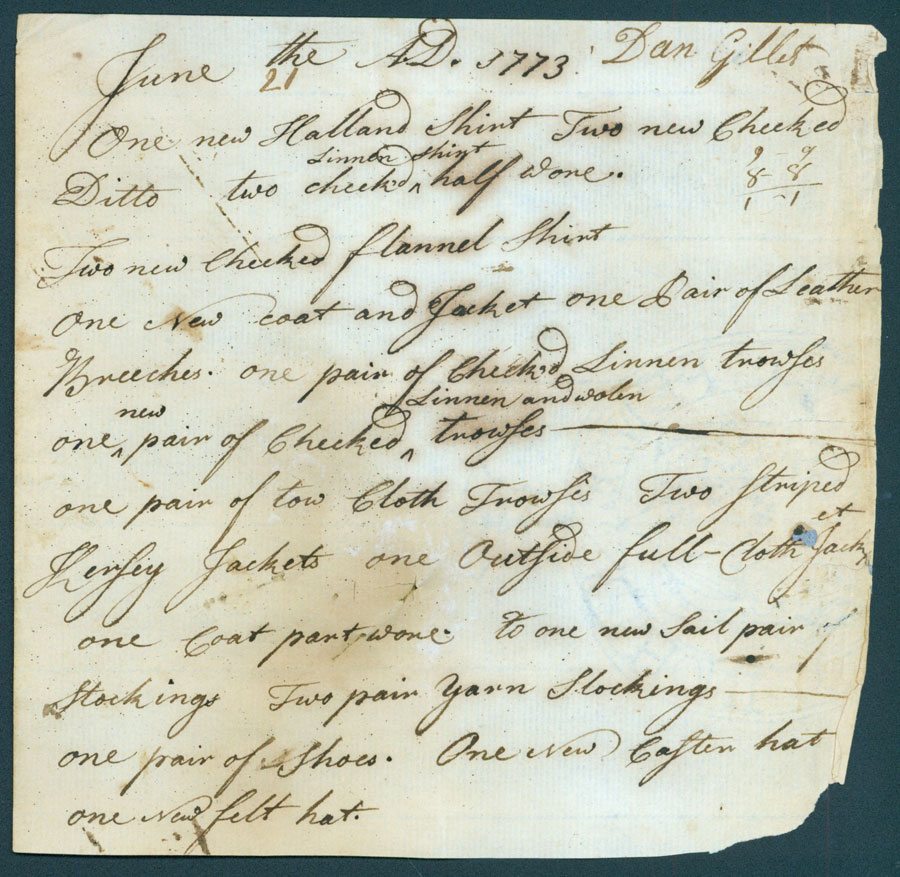 June the 21 A.D. 1773 Dan Gillet
One new Halland Shirt Two new Checked
Linnen Shirt
Ditto two checkd ^ half wore.
9 - 9
8 - 8
1 - 1
Two new Checked flannel Shirt
One New coat and Jacket one Pair of Leather
Breeches. one pair of Checkd Linnen trowses
new Linnen and wolen
one ^ pair of Checked ^ trowses
one pair of tow Cloth Trowses Two Striped
Kersey Jackets one Outside full-Cloth Jacket
one Coat part wore. to one new Sail pair of
Stockings Two pair Yarn Stockings
one pair of Shoes. One New Caster hat
one New felt hat.